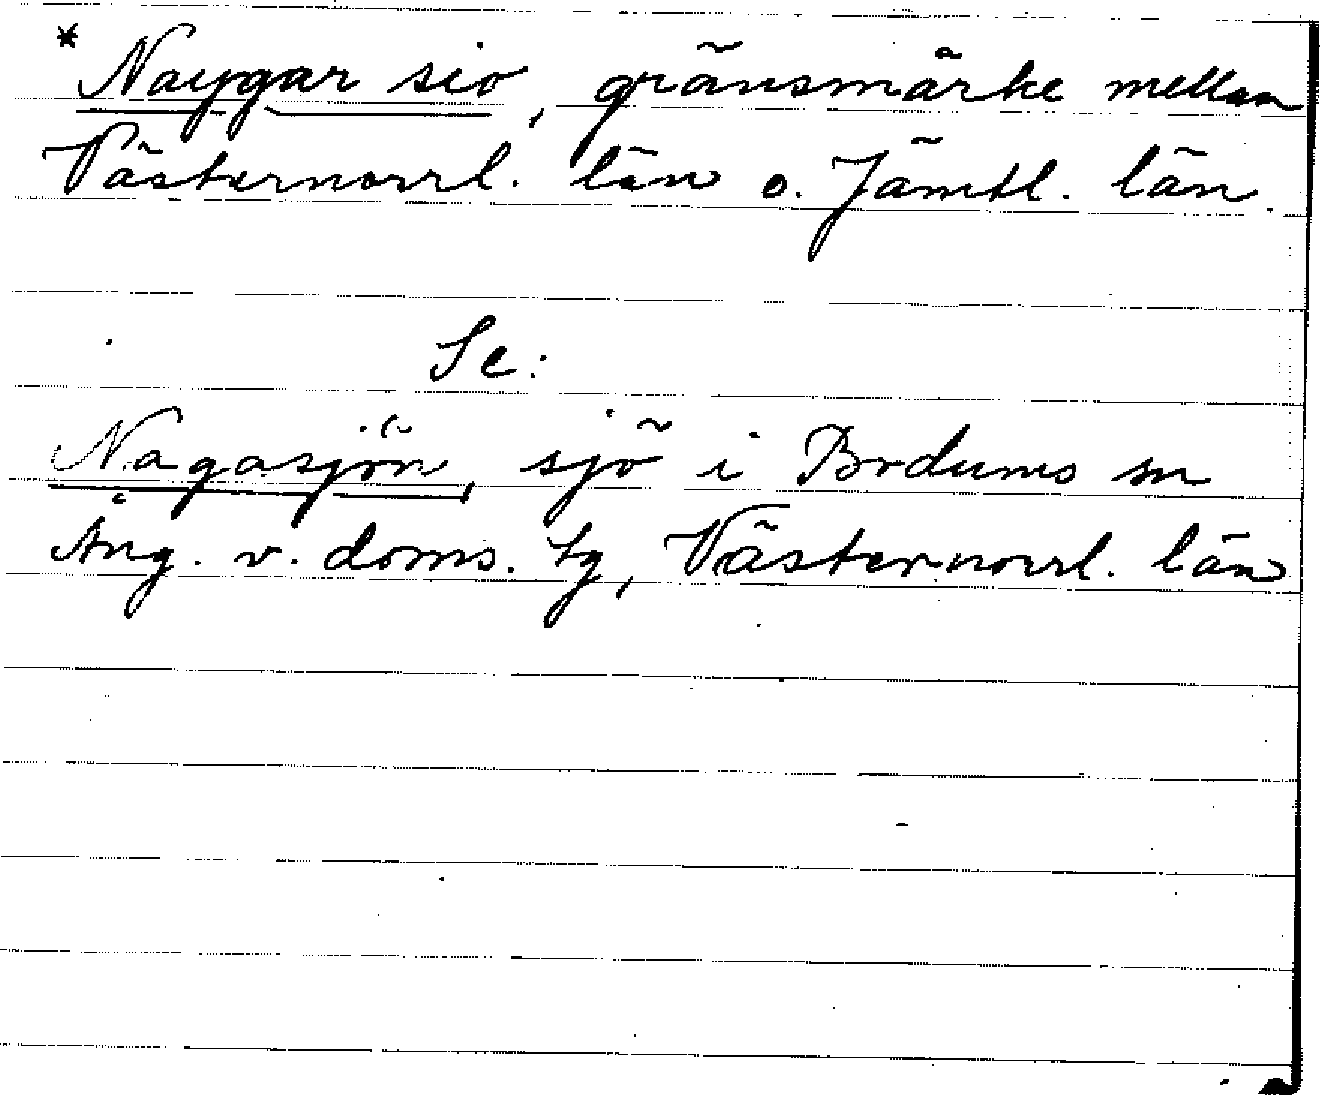 * Naygar sio, gränsmärke mellan
Västernorrl. län o. Jämtl. län.
Se:
Nagasjön, sjö i Bodums sn
Ång. v. doms. tg, Västernorrl. län